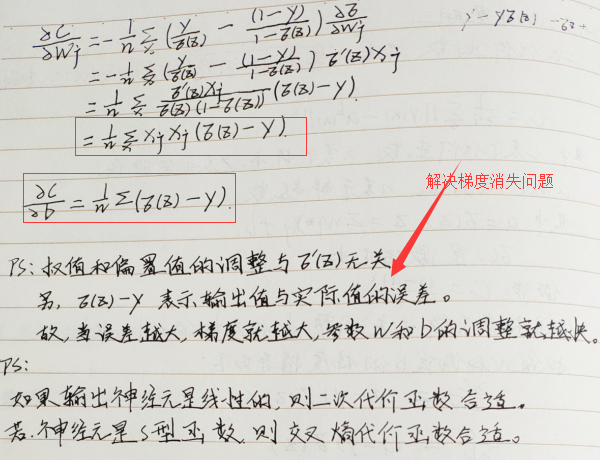 ∂C/∂Wj = -1/n Σx (y/σ(z) - (1-y)/(1-σ(z))) ∂σ/∂Wj
= -1/n Σx (y/σ(z) - (1-y)/(1-σ(z))) σ'(z)xj
= 1/n Σx σ'(z)xj/(σ(z)(1-σ(z))) (σ(z)-y).
= 1/n Σx xj xj (σ(z)-y).
∂C/∂b = 1/n Σ(σ(z)-y).
解决梯度消失问题
PS: 权值和偏置值的调整与σ'(z)无关
另, σ(z)-y 表示输出值与实际值的误差。
故, 当误差越大, 梯度就越大, 参数w和b的调整就越快。
PS:
如果输出神经元是线性的, 则二次代价函数合适。
若神经元是S型函数, 则交叉熵代价函数合适。